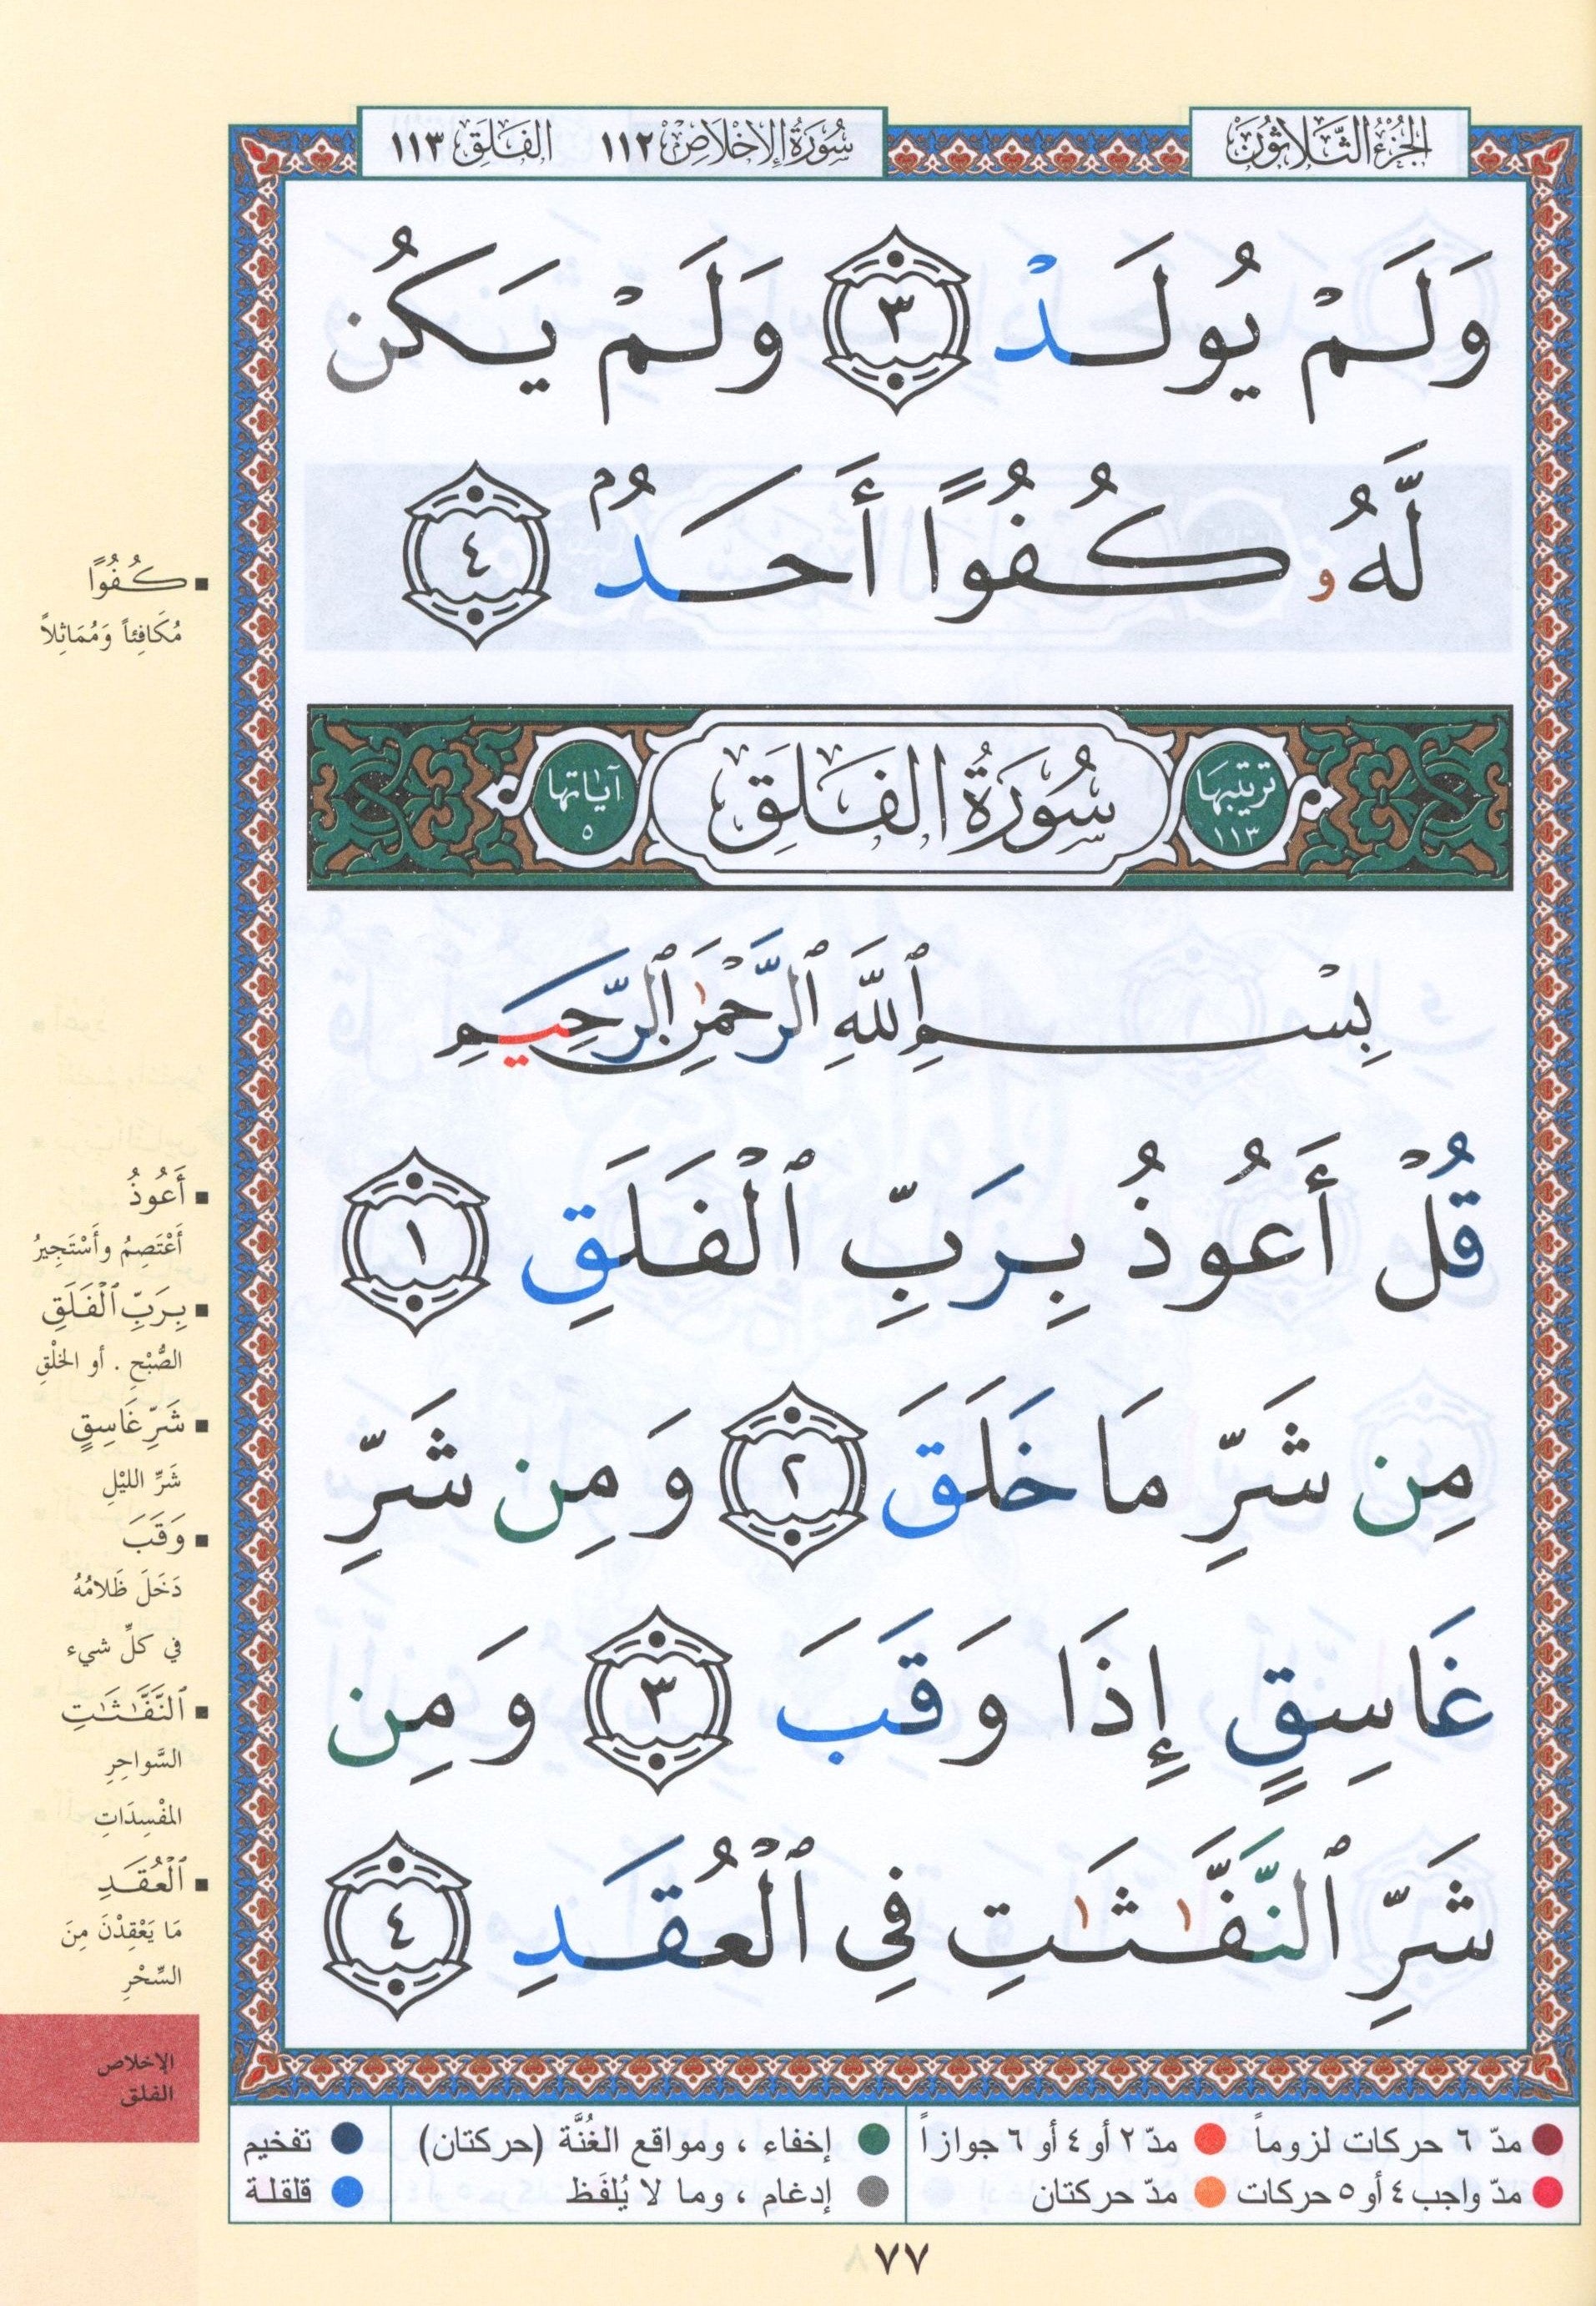 الجُزْءُ الثَّلَاثُونَ
سُورَةُ الإِخْلَاصِ ١١٢ الفَلَقِ ١١٣
وَلَمْ يُولَدْ ٣ وَلَمْ يَكُن
لَّهُۥ كُفُوًا أَحَدٌۢ ٤
تَرتيبُهَا ١١٣
سُورَةُ الفَلَقِ
آيَاتُها ٥
بِسْمِ ٱللَّهِ ٱلرَّحْمَٰنِ ٱلرَّحِيمِ
قُلْ أَعُوذُ بِرَبِّ ٱلْفَلَقِ ١
مِن شَرِّ مَا خَلَقَ ٢ وَمِن شَرِّ
غَاسِقٍ إِذَا وَقَبَ ٣ وَمِن
شَرِّ ٱلنَّفَّٰثَٰتِ فِى ٱلْعُقَدِ ٤
▪ كُفُوًا
مُكَافِئاً وَمُمَاثِلاً
▪ أَعُوذُ
أَعْتَصِمُ وأَسْتَجِيرُ
▪ بِرَبِّ ٱلْفَلَقِ
الصُّبْحِ . أو الخلْقِ
▪ شَرِّ غَاسِقٍ
شَرِّ الليْلِ
▪ وَقَبَ
دَخَلَ ظَلامُهُ
في كلِّ شيء
▪ ٱلنَّفَّٰثَٰتِ
السَّواحِرِ
المفْسِدَاتِ
▪ ٱلْعُقَدِ
مَا يَعْقِدْنَ مِنَ
السِّحْرِ
الإخلاص
الفلق
مدّ ٦ حركات لزوماً ● مدّ ٢ أو ٤ أو ٦ جوازاً
مدّ واجب ٤ أو ٥ حركات ● مدّ حركتان
إخفاء ، ومواقع الغُنَّة (حركتان)
إدغام ، وما لا يُلفَظ
تفخيم
قلقلة
٧٧